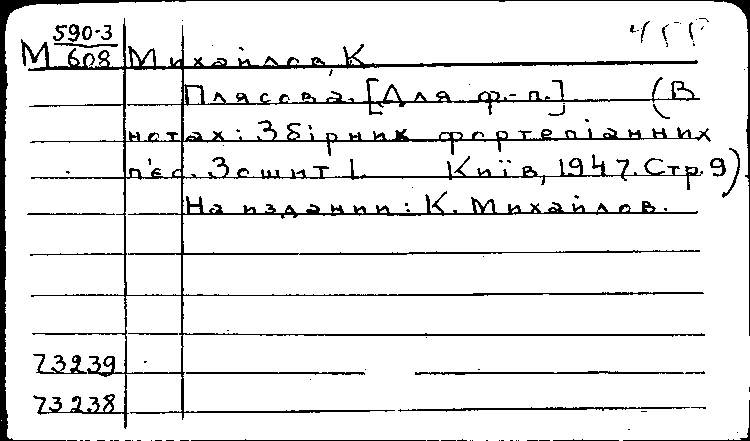 УРР
М 590-3/608 Михайлов, К.
Плясова. [Для ф.-п.] (В
нотах: Збірник фортепіанних
п'єс. Зошит 1. Київ, 1947. Стр. 9).
На издании: К. Михайлов.
73239
73238